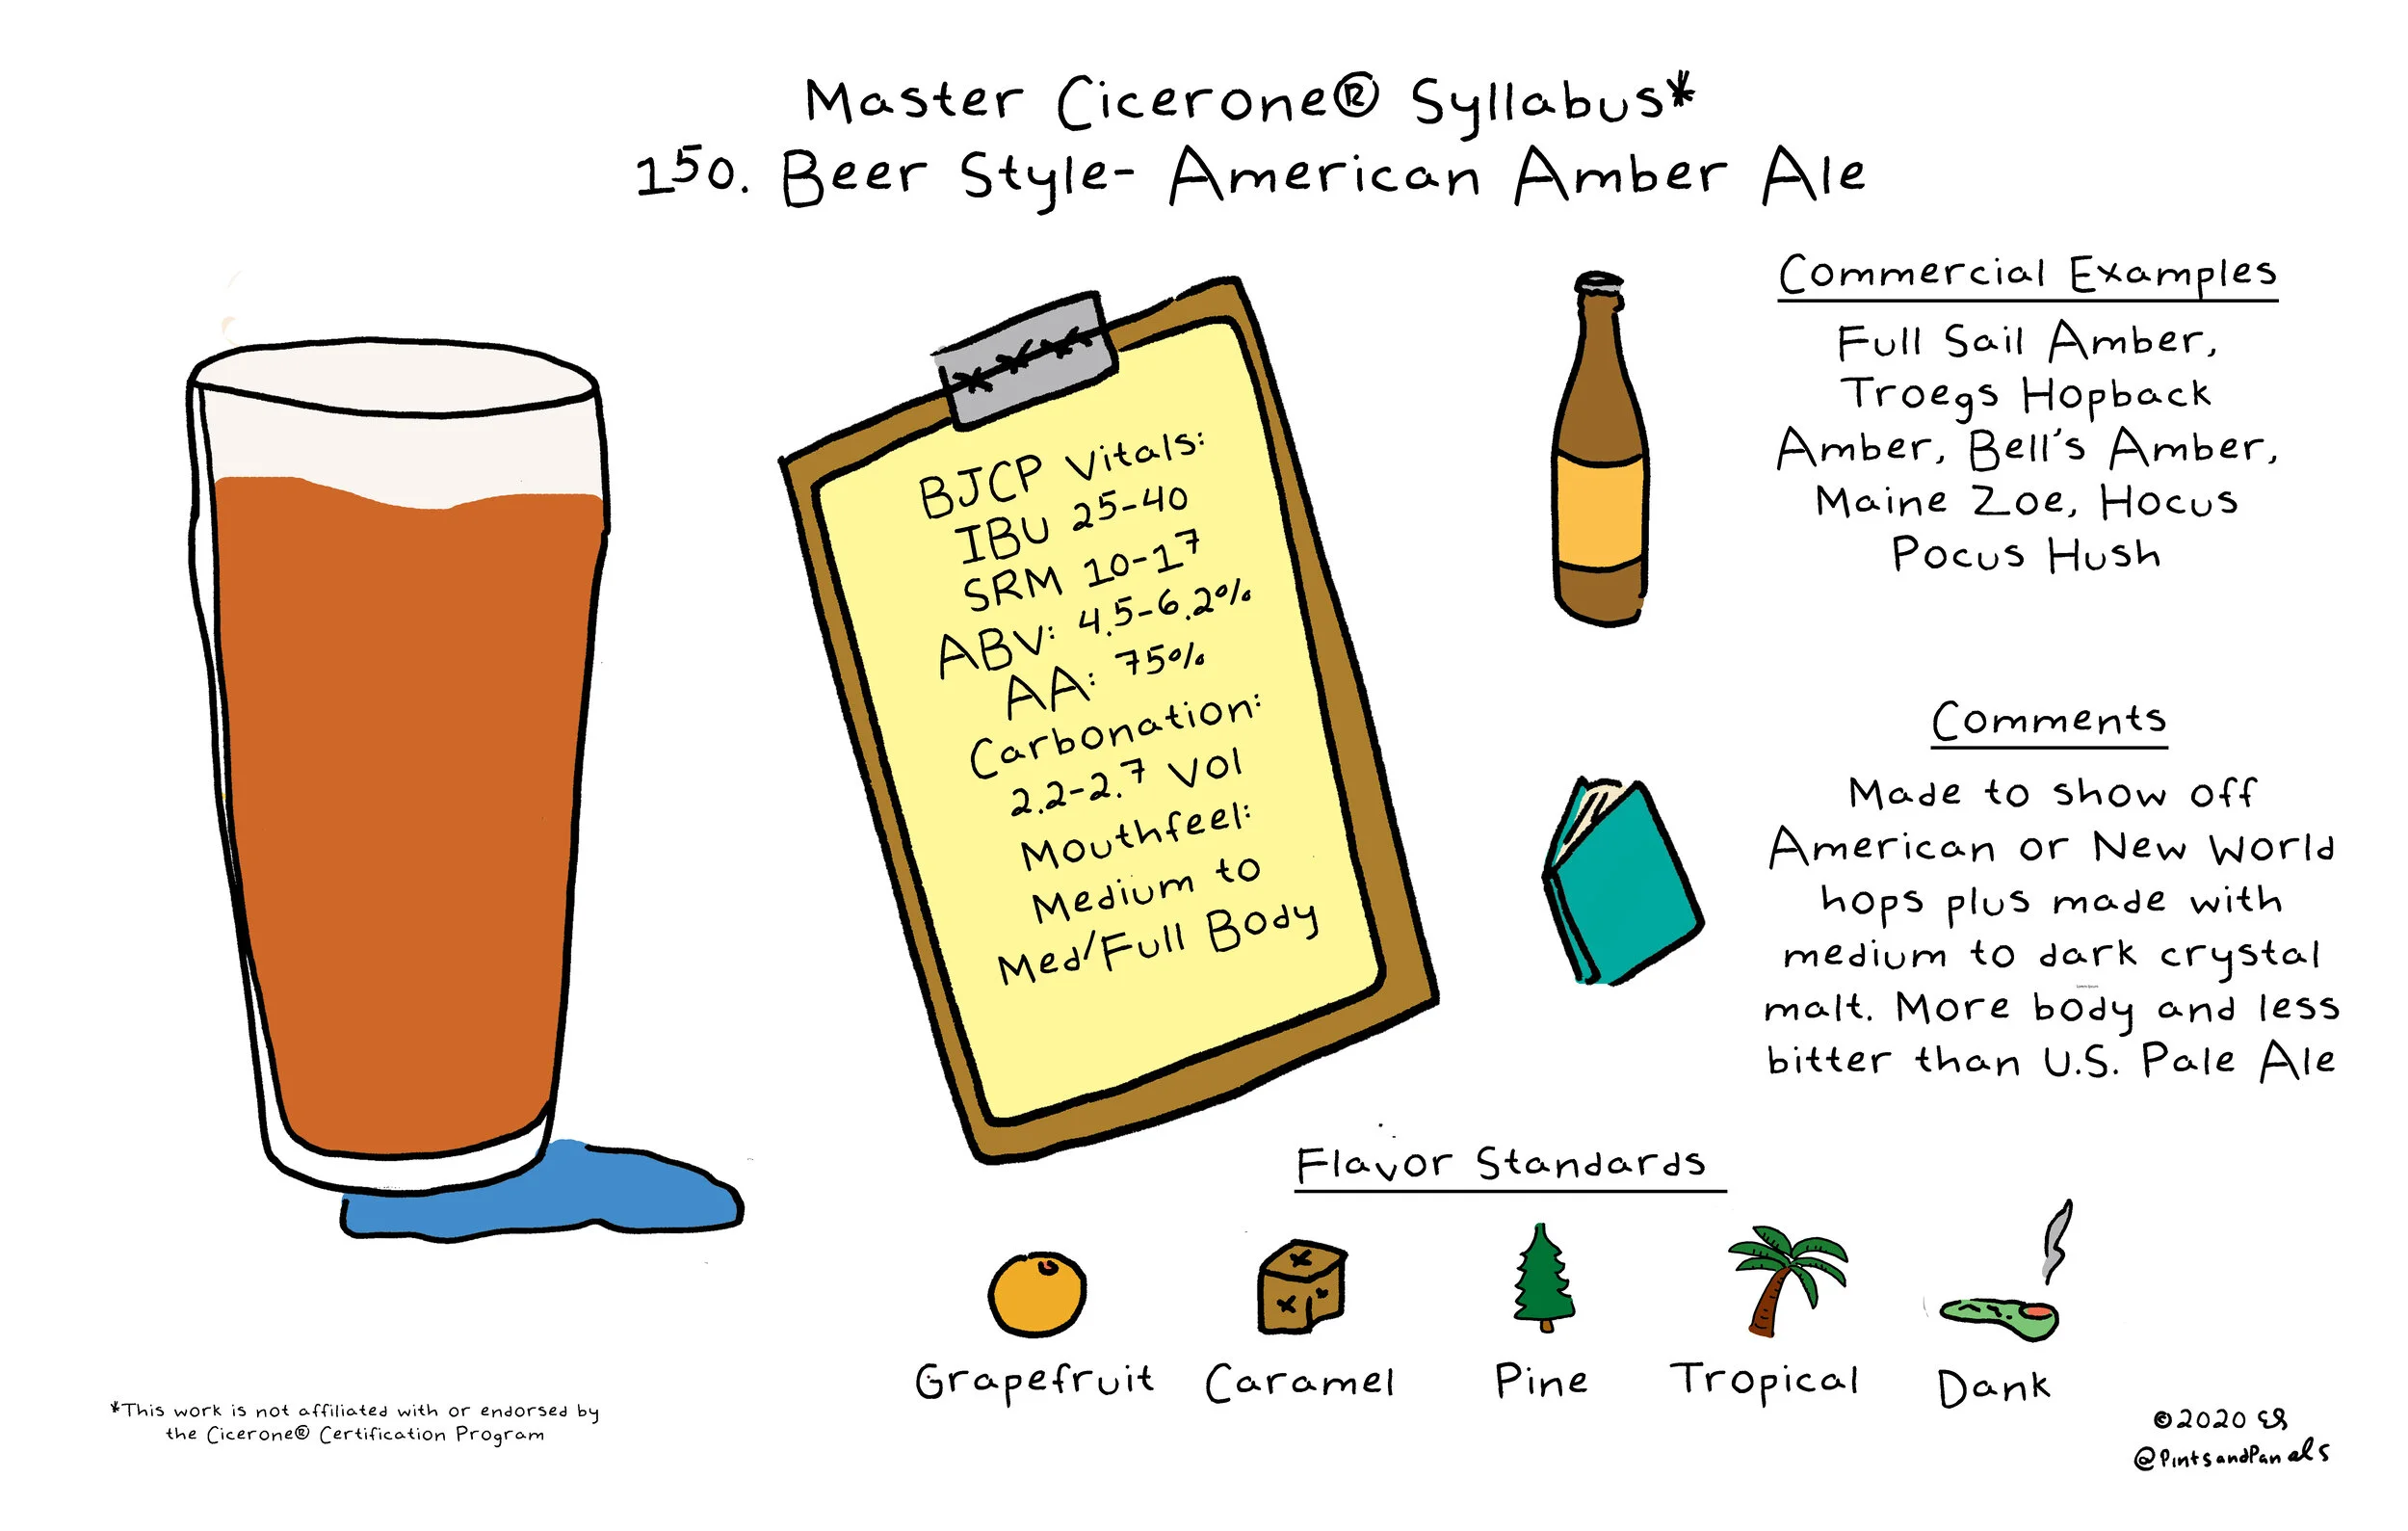 Master Cicerone® Syllabus*
150. Beer Style- American Amber Ale
BJCP Vitals:
IBU 25-40
SRM 10-17
ABV: 4.5-6.2%
AA: 75%
Carbonation:
2.2-2.7 Vol
Mouthfeel:
Medium to
Med/Full Body
Commercial Examples
Full Sail Amber,
Troegs Hopback
Amber, Bell's Amber,
Maine Zoe, Hocus
Pocus Hush
Comments
Made to show off
American or New World
hops plus made with
medium to dark crystal
malt. More body and less
bitter than U.S. Pale Ale
Flavor Standards
Grapefruit
Caramel
Pine
Tropical
Dank
*This work is not affiliated with or endorsed by
the Cicerone® Certification Program
©2020 ES
@PintsandPanels